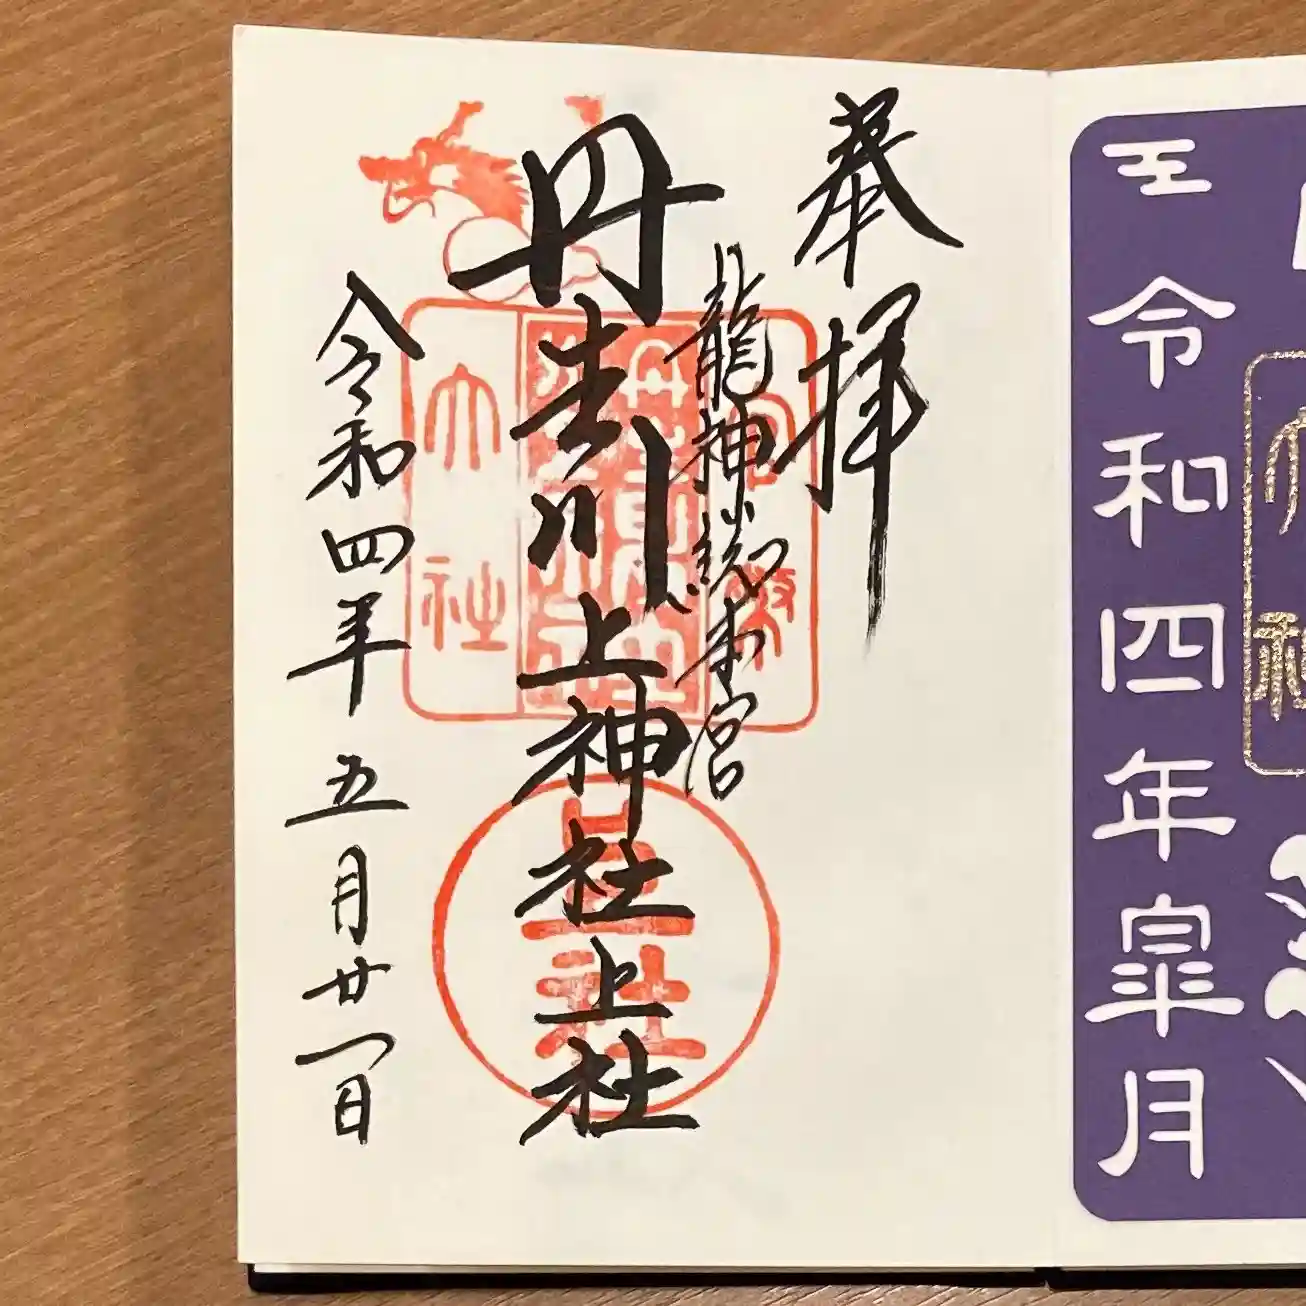 令和四年皐月
奉拝
龍神総本宮
丹生川上神社上社
令和四年五月廿一日
官幣
丹生川上神社
大社
上社